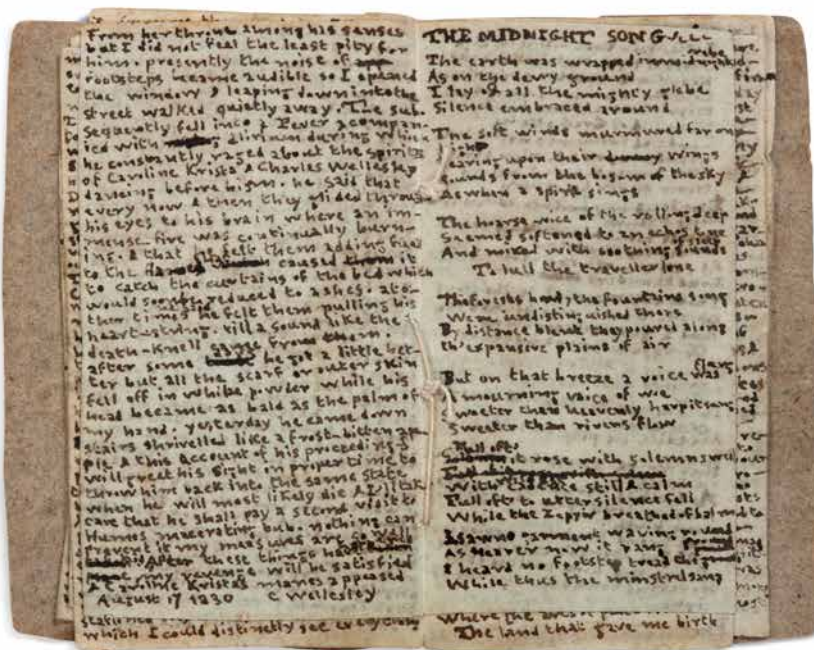 From her throne among his senses
but I did not feel the least pity for
him. presently the noise of
footsteps became audible so I opened
the window & leaping down into the
street walked quietly away. The Sub-
sequently fell into a Fever accompan-
ied with dlirium during which
he constantly raged about the spirits
of Caroline Krista & Charles Wellesley
dancing before him. he said that
every now & then they glided through
his eyes to his brain where an im-
mense fire was continually burn-
ing. & that he felt them adding fuel
to the flames caused it
to catch the curtains of the bed which
would soon be reduced to ashes. at o-
ther times he felt them pulling his
heart-strings. till a sound like the
death-Knell came from them.
after some he got a little bet-
ter but all the scarf or outer skin
fell off in white powder while his
head became as bald as the palm of
my hand. yesterday he came down
stairs shrivelled like a frost-bitten ap-
ple & this account of his proceedings
will greet his sight in proper time to
throw him back into the same state
when he will most likely die & I'll take
care that he shall pay a second visit to
Humes macerating tub. nothing can
prevent it my measures are so well
After these things have
my revenge will be satisfied
& Caroline Kristas manes appeased
August 17 1830 C Wellesley
which I could distinctly see every
THE MIDNIGHT SONG
The earth was wrapped in robe
As on the dewy ground
I lay of all the mighty glebe
Silence embraced around
The soft winds murmured far on
high
Bearing upon their wings
Sounds from the bosom of the sky
As when a spirit sings
The hoarse voice of the rolling deep
Seemed softened to an echos tone
And mixed with soothing sounds
of sleep
To lull the traveller lone
The forests howl, the fountains song
Were undistinguished there
By distance blent they poured along
th'expansive plains of air
But on that breeze a voice was
flung
A mourning voice of woe
Sweeter than heavenly harp it sang
Sweeter than rivers flow
Full oft
it rose with solemn swell
With cadence still & calm
Full oft to utter silence fell
While the Zephyr breathed of balm
I saw no garment waving round
As Nearer now it rang
I heard no footstep tread the ground
While thus the minstrel sang
Where the
The land that gave me birth